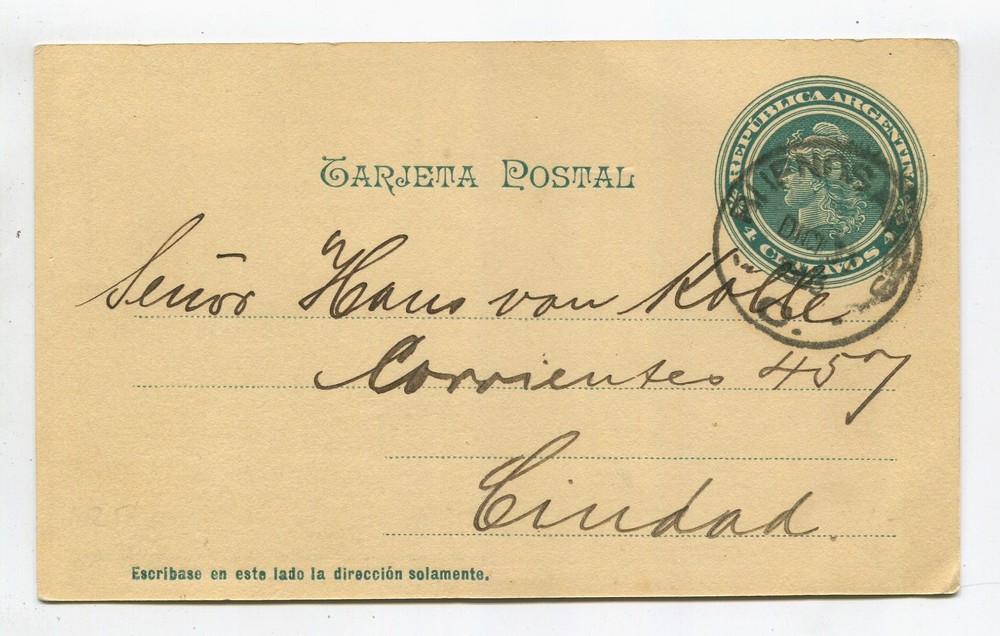 REPÚBLICA ARGENTINA
4 CENTAVOS 4
TARJETA POSTAL
Señor Hans von Kolbe
Corrientes 457
Ciudad.
Escríbase en este lado la dirección solamente.